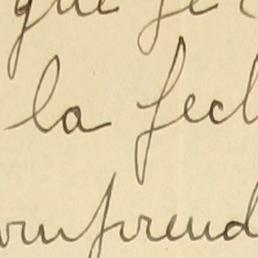 que je
la fecl
omprend